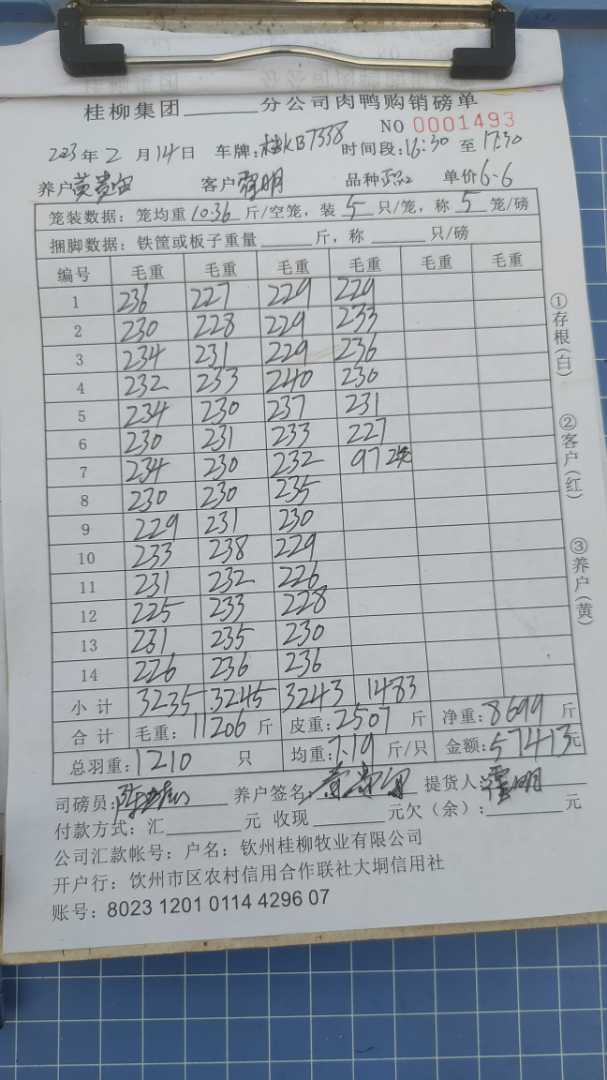 桂柳集团______分公司肉鸭购销磅单
NO 0001493
2023年2月14日 车牌:桂KB7338 时间段:16:30至17:30
养户黄贵宙 客户翟明 品种 单价6.6
笼装数据:笼均重10.36斤/空笼,装5只/笼,称5笼/磅
捆脚数据:铁筐或板子重量______斤,称______只/磅
编号 毛重 毛重 毛重 毛重 毛重 毛重
1 236 227 229 229
2 230 228 229 233
3 234 231 229 236
4 232 233 240 230
5 234 230 237 231
6 230 231 233 227
7 234 230 232 97 2笼
8 230 230 235
9 229 231 230
10 233 238 229
11 231 232 226
12 225 233 228
13 231 235 230
14 226 236 236
小计 3235 3245 3243 1483
合计 毛重:11206斤 皮重:2507斤 净重:8699斤
总羽重:1210只 均重:7.19斤/只 金额:57413元
司磅员: 养户签名: 提货人:翟明
付款方式:汇______元 收现______元欠(余):______元
公司汇款帐号:户名:钦州桂柳牧业有限公司
开户行:饮州市区农村信用合作联社大垌信用社
账号:8023 1201 0114 4296 07
①存根(白)
②客户(红)
③养户(黄)